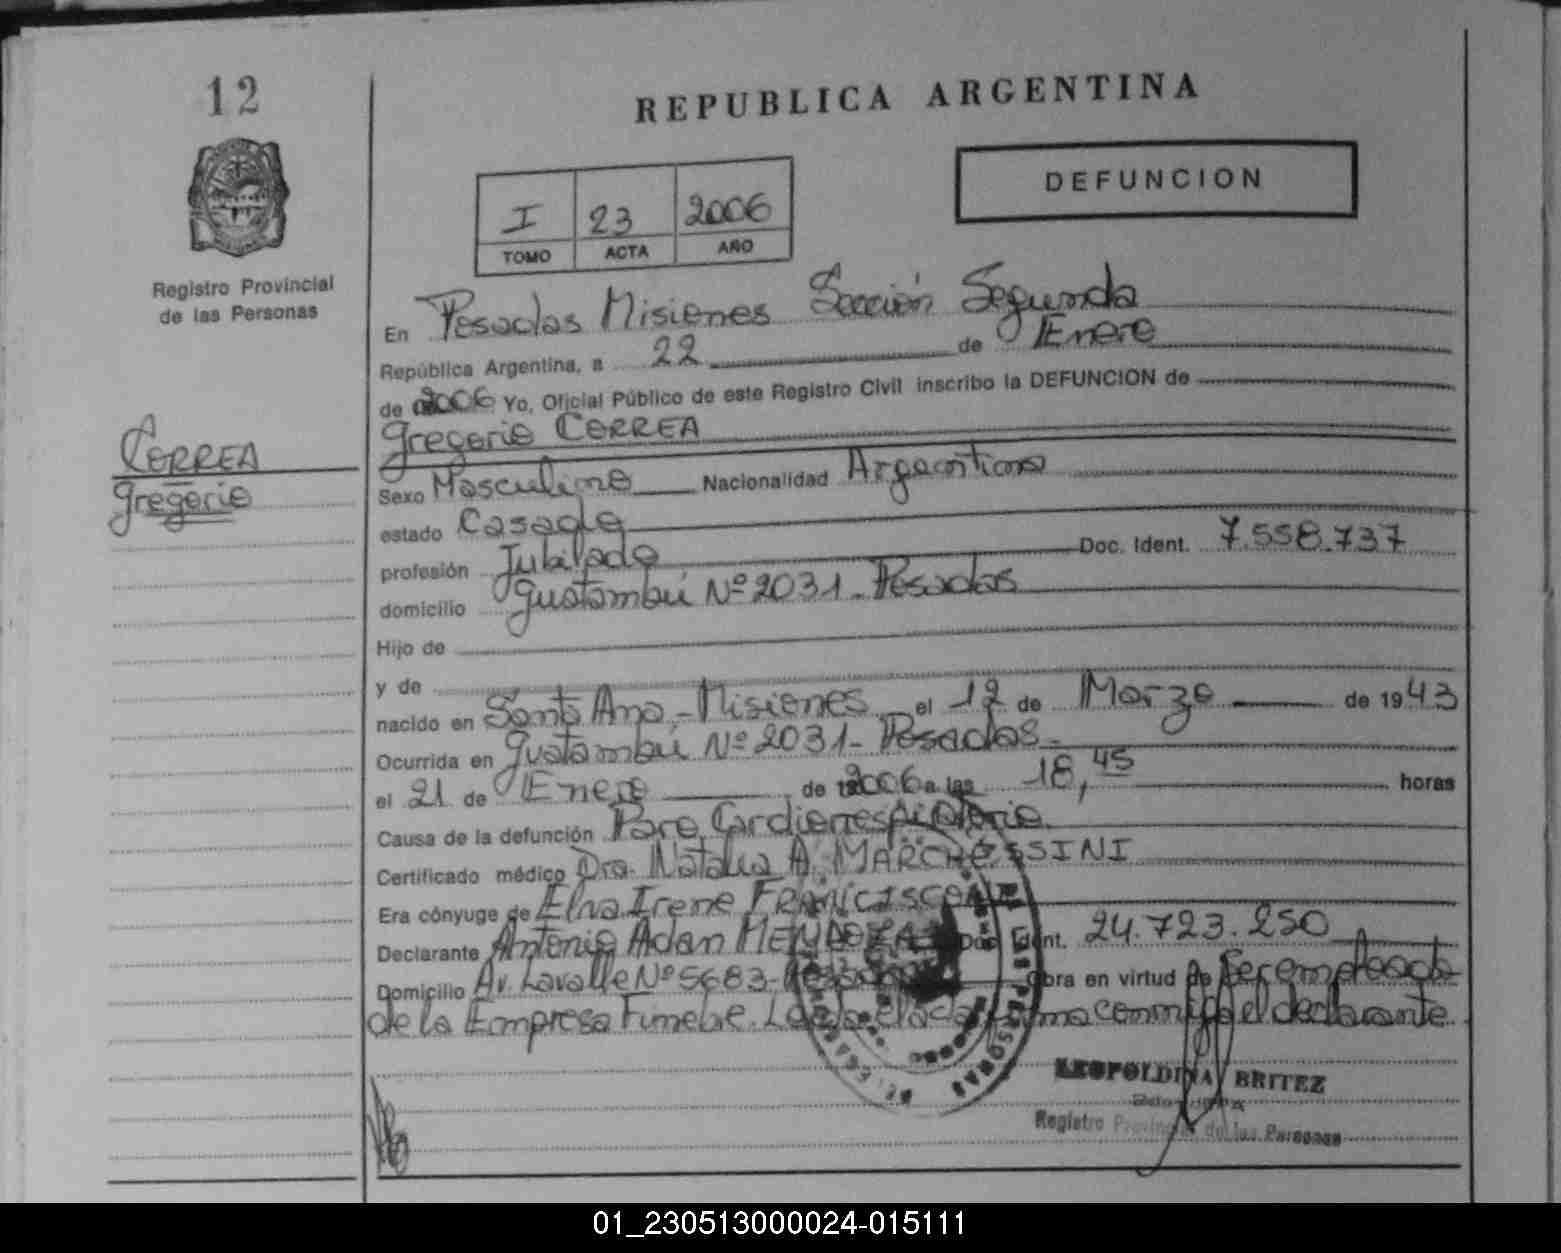 12
REPUBLICA ARGENTINA
DEFUNCION
I 23 2006
TOMO ACTA AÑO
Registro Provincial
de las Personas
En Posadas Misiones Sección Segunda
República Argentina, a 22 de Enero
de 2006 Yo, Oficial Público de este Registro Civil inscribo la DEFUNCION de
Gregorio CORREA
CORREA
Gregorio
Sexo Masculino Nacionalidad Argentina
estado Casado
profesión Jubilado Doc. Ident. 7.558.737
domicilio Guatambú Nº 2031 - Posadas
Hijo de
y de
nacido en Santa Ana - Misiones el 12 de Marzo de 1943
Ocurrida en Guatambú Nº 2031 - Posadas -
el 21 de Enero de 2006 a las 18,45 horas
Causa de la defunción Paro Cardiorrespiratorio
Certificado médico Dra. Natalia A. MARCHESSINI
Era cónyuge de Elva Irene
Declarante Antonio Adan MENDOZA Doc Ident. 24.723.250
Domicilio Av. Lavalle Nº 5683 - Obra en virtud de Ser empleado
de la Empresa Funebre. Leida el acta firma conmigo el declarante.
PERSONAS
LEOPOLDINA BRITEZ
Registro Provincial de las Personas
01_230513000024-015111